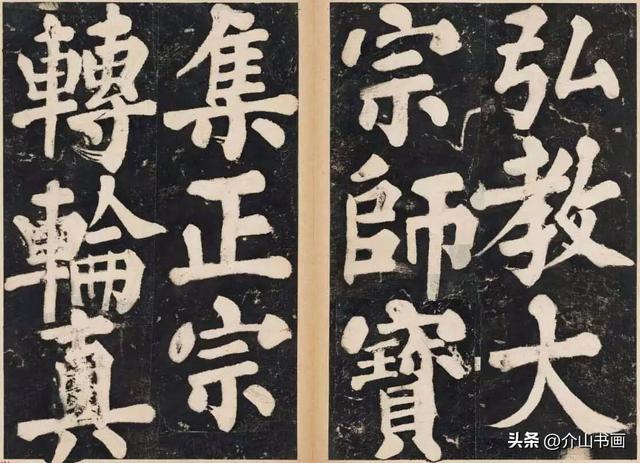 弘教大
宗師寶
集正宗
轉輪真
头条 @介山书画